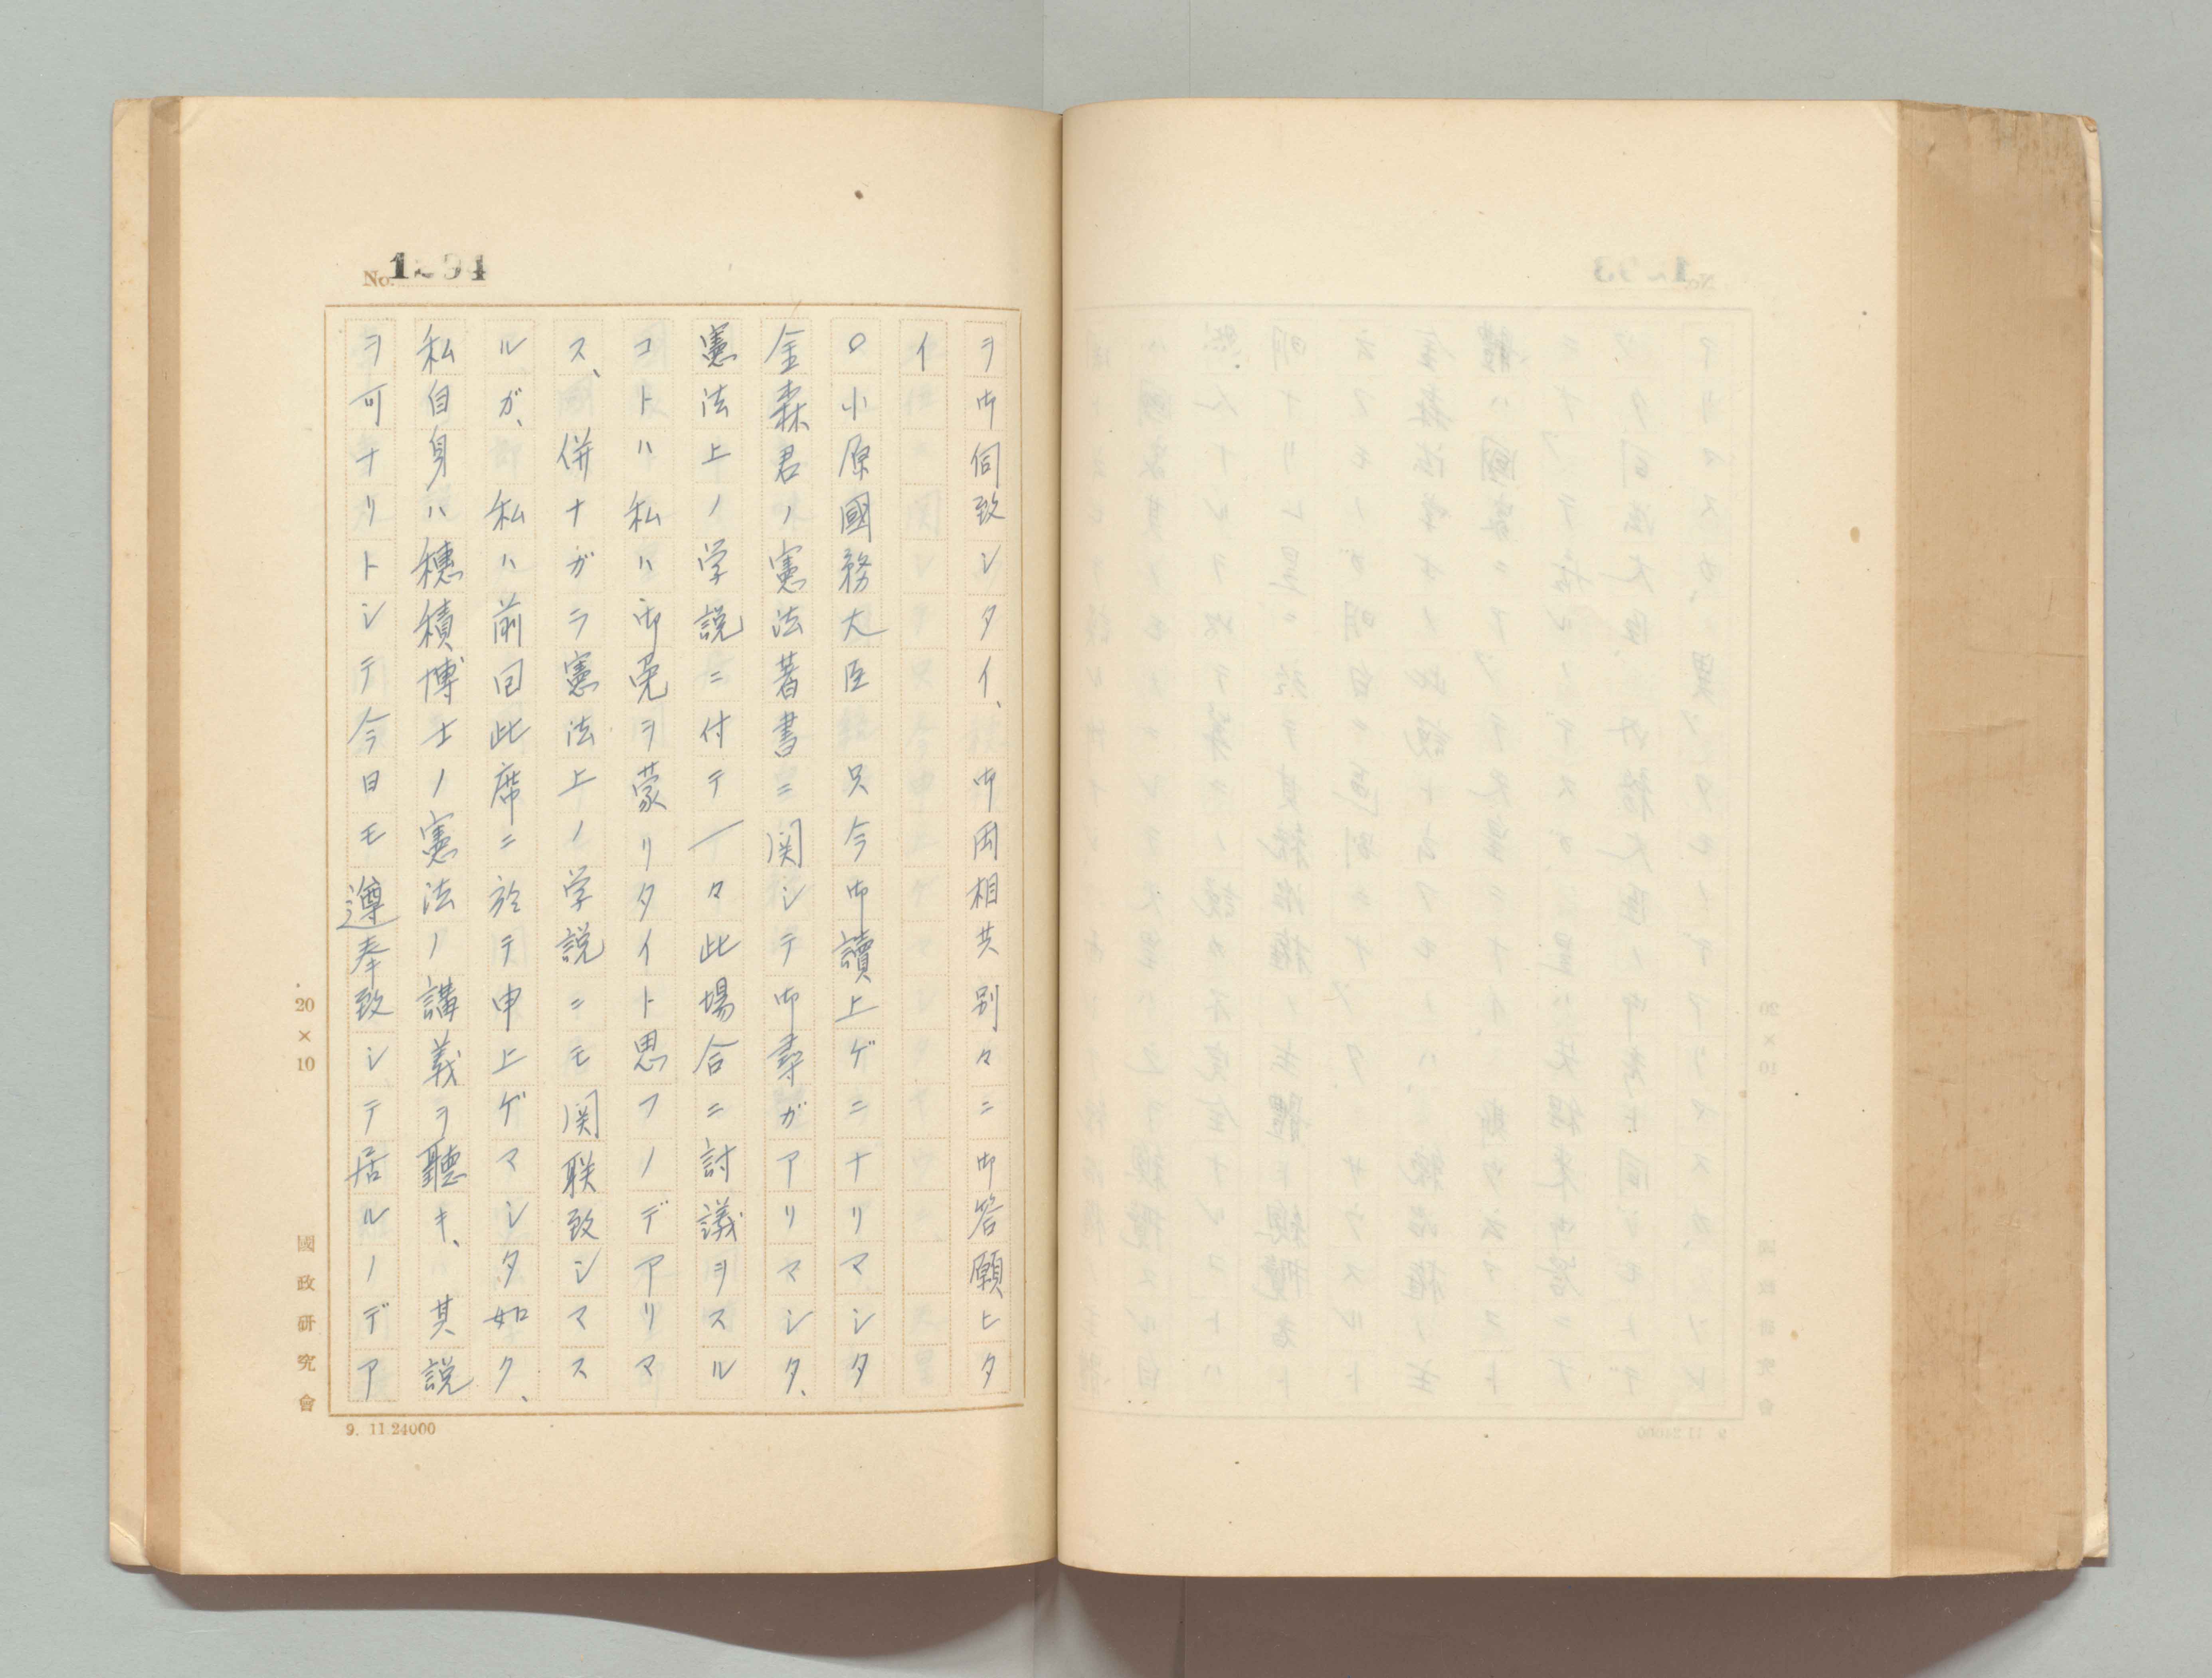 No. 1294
ヲ御伺致シタイ、御両相共別々ニ御答願ヒタ
イ
○小原國務大臣 只今御讀上ゲニナリマシタ
金森君ノ憲法著書ニ関シテ御尋ガアリマシタ、
憲法上ノ学説ニ付テ一々此場合ニ討議ヲスル
コトハ私ハ御免ヲ蒙リタイト思フノデアリマ
ス、併ナガラ憲法上ノ学説ニモ関联致シマス
ルガ、私ハ前回此席ニ於テ申上ゲマシタ如ク、
私自身ハ穗積博士ノ憲法ノ講義ヲ聽キ、其説
ヲ可ナリトシテ今日モ遵奉致シテ居ルノデア
20×10
國政研究會
9. 11.24000